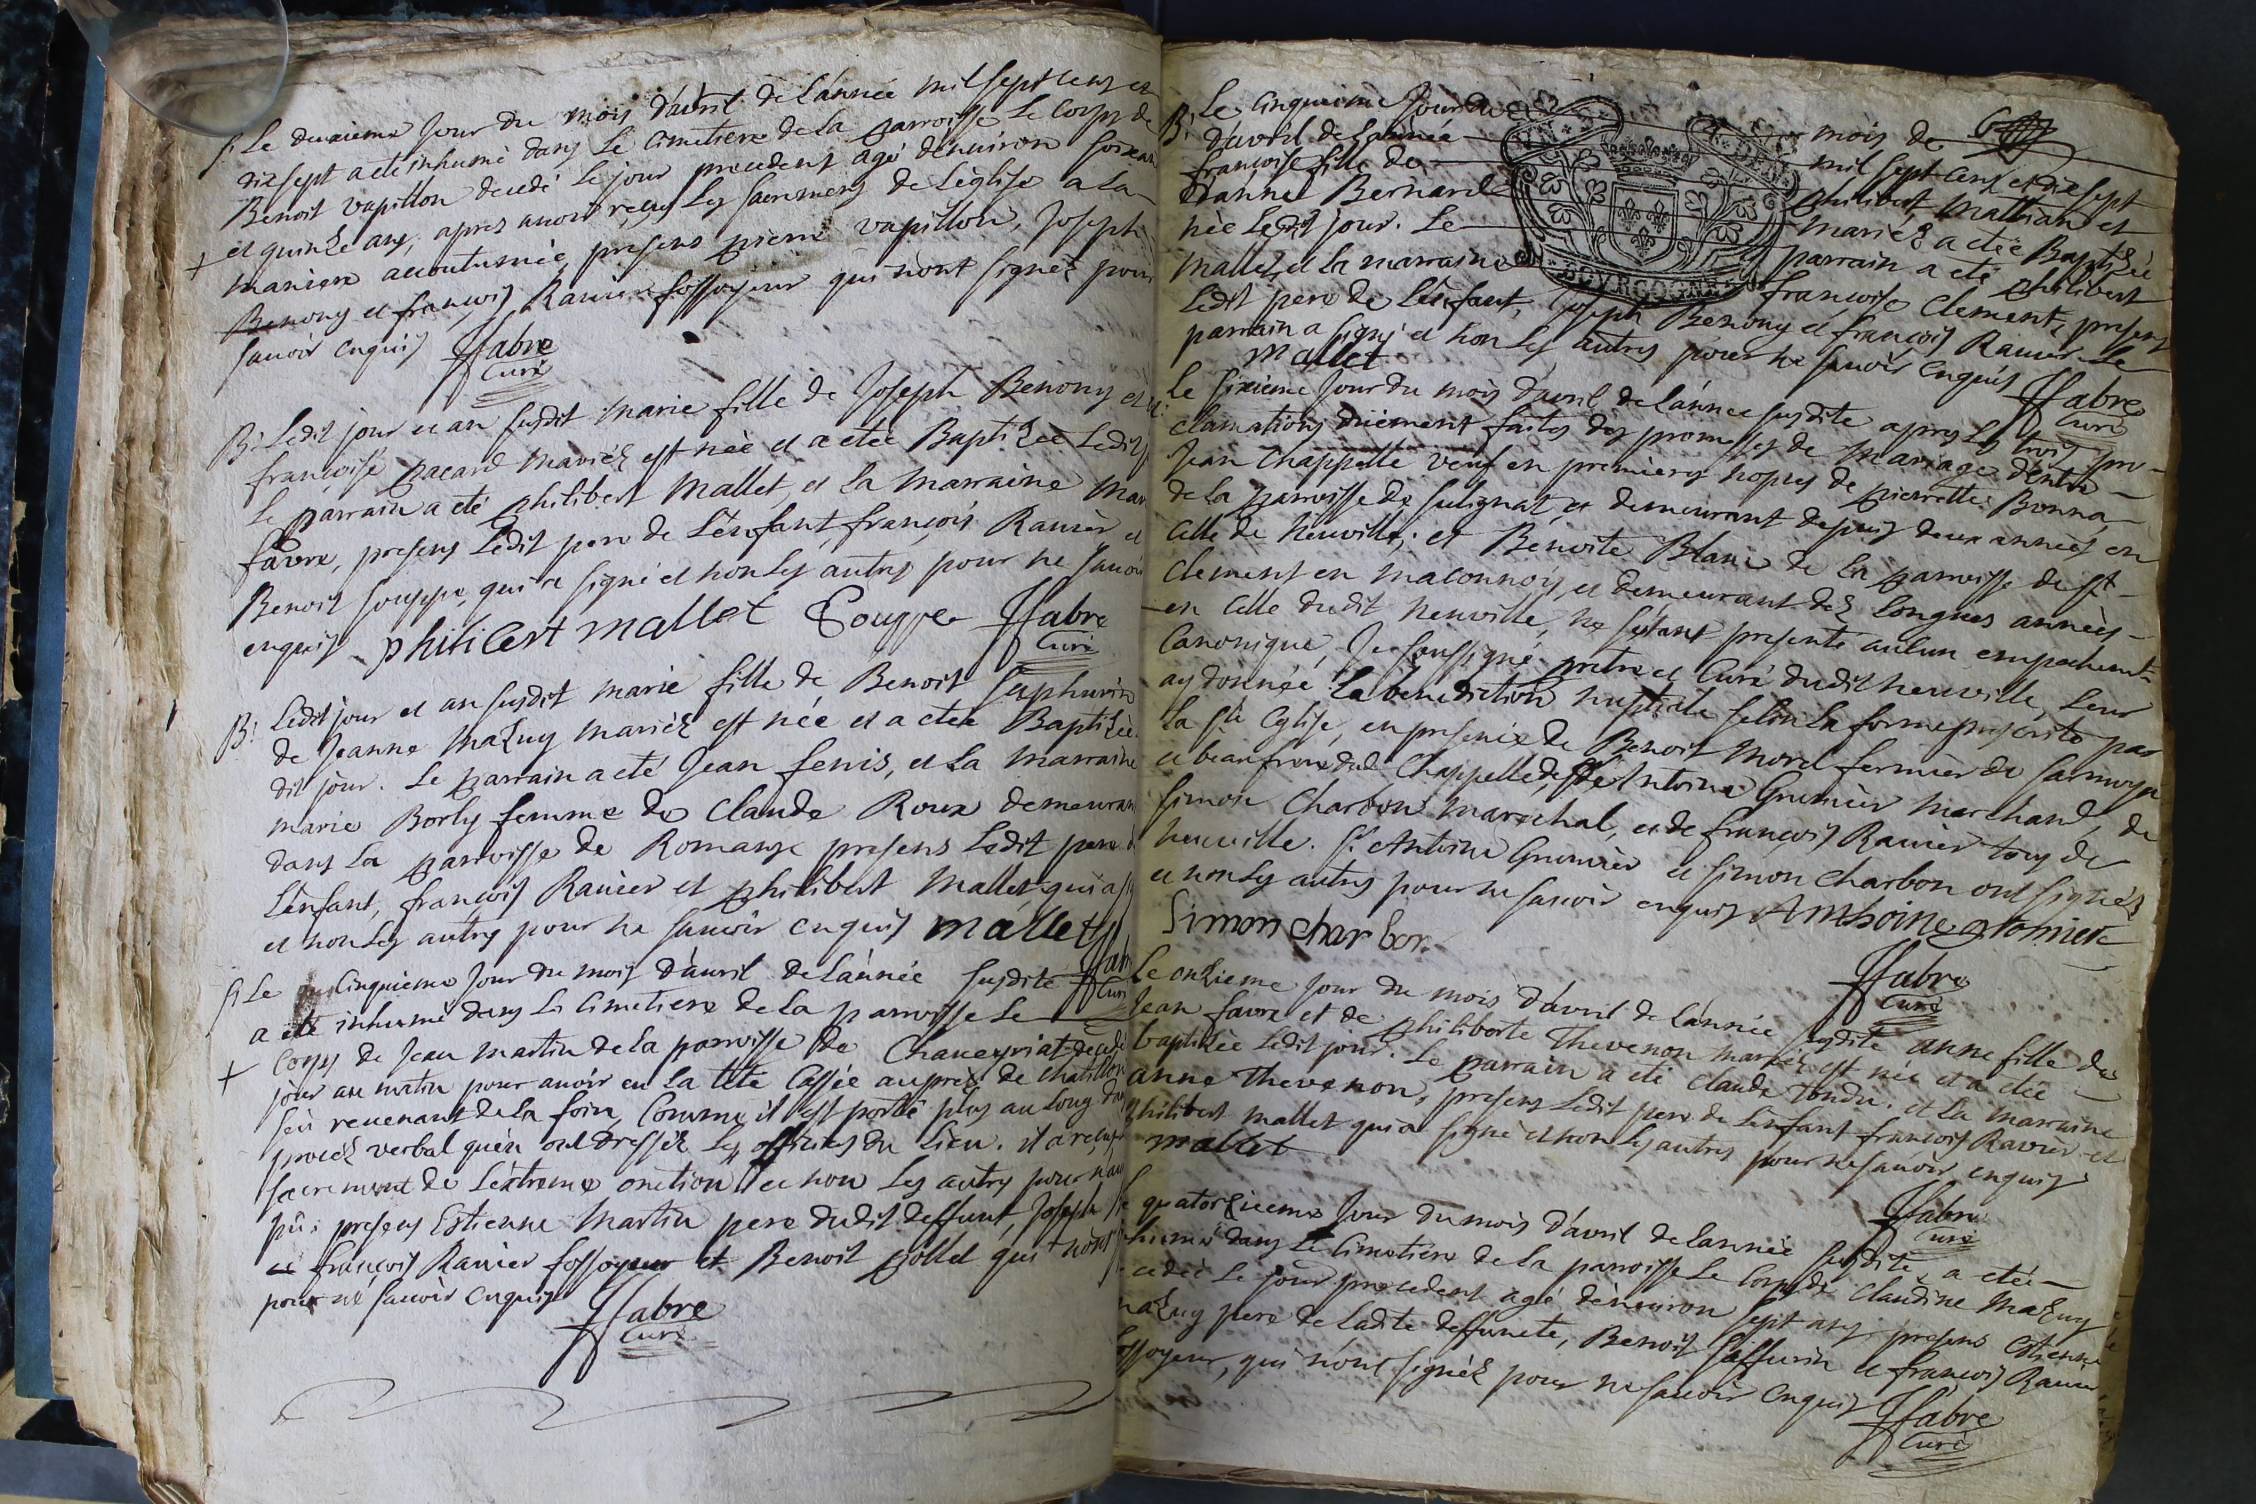 S. Le deuxieme jour du mois d'avril de l'année mil sept cens et
dix sept a eté inhumé dans le cimetiere de la parroisse le corps de
Benoit vapillon decedé le jour precedent agé d'environ soixan
et quinze ans, apres avoir reçeu les sacremens de l'église a la
+ maniere accoutumée, presens pierre vapillon, Joseph
Benony et françois Ravier fossoyeur qui n'ont signéz pour
savoir enquis ffabre
Curé
B. Ledit jour et an susdit marie fille de Joseph Benony et
françoise pacard mariéz est née et a eteé Baptizée ledit
le parrain a eté philibert Mallet, et la marraine mar
favre, presens ledit pere de l'énfant, françois Ravier et
Benoit souppe, qui a signé et non les autres pour ne savoir
enquis philibert mallet Souppe ffabre
Curé
B. Ledit jour et an susdit marie fille de Benoit saphurin
de Jeanne Mazuy mariéz est née et a eteé Baptizée
dit jour. Le parrain a eté Jean fenis, et la marraine
marie Borly femme de Claude Roux demeurant
dans la parroisse de Romans presens ledit pere
L'énfant, françois Ravier et philibert Mallet qui a
et non les autres pour ne savoir enquis mallet ffabre
Curé
S. Le cinquieme jour du mois d'avril de l'année susdite
a eté inhumé dans le cimetiere de la parroisse le
+ corps de Jean Martin de la parroisse de Chaneyriat decedé
jour au matin pour avoir eu la tete cassée aupres de chatillon
s'en revenant de la foire, comme il est porté plus au long dans
procéz verbal qu'en ont dresséz les officiers du lieu. il a reçeu
sacrement de l'éxtreme onction et non les autres pour n'av
pû: presens Estienne Martin pere dudit deffunt, Joseph
et françois Ravier fossoyeur et Benoit pollet qui n'ont
pour ne savoir enquis ffabre
Curé
B. Le cinquieme jour du mois de
d'avril de l'année mil sept cens et dix sept
françoise fille de philibert Mathian et
Jeanne Bernard mariéz a eteé Baptizée
née ledit jour. Le parrain a eté philibert
Mallet, et la marraine françoise Clement, presens
BOVRGOGNE
Ledit pere de l'énfant, Joseph Benony et françois Ravier. Le
parrain a signé et non les autres pour ne savoir enquis ffabre
Mallet Curé
Le sixieme jour du mois d'avril de l'année susdite apres les trois pro-
clamations düement faites des promesses de mariage d'entre
Jean Chappelle veuf en premieres nopces de pierrette Bonna
de la parroisse de sulignat, et demeurant depuis deux années en
celle de Neuville; et Benoite Blanc de la parroisse de St
Clement en maconnois, et demeurant dez longues années
en celle dudit Neuville, ne s'étant presenté aucun empechement
canonique, Je soussigné pretre et Curé dudit neuville, leur
ay donnée la benediction nuptiale selon la forme prescrite par
la Ste Eglise, en presence de Benoit Morel fermier de
et beaufrere dud. Chappelle, de Sr Antoine Grumier Marchand, de
simon Charbon Marechal, et de françois Ravier tous de
neuville. Sr Antoine Grumier et simon Charbon ont signéz
et non les autres pour ne savoir enquis Anthoine gromier
Simon charbon
ffabre
Curé
Le onzieme jour du mois d'avril de l'année susdite anne fille de
Jean favre et de philiberte Thevenon mariéz est née et a eteé
baptizée ledit jour. Le parrain a eté Claude Tondu. et la marraine
anne Thevenon, presens ledit pere de l'énfant françois Ravier et
philibert mallet qui a signé et non les autres pour ne savoir enquis
mallet
ffabre
Curé
quatorzieme jour du mois d'avril de l'année susdite, a eteé
humé dans le cimetiere de la parroisse le corps de Claudine Mazuy
cedeé le jour precedent agé d'environ sept ans presens Estienne
mazuy pere de ladite deffuncte, Benoit saffurin et françois Ravier
fossoyeur, qui n'ont signéz pour ne savoir enquis
ffabre
Curé